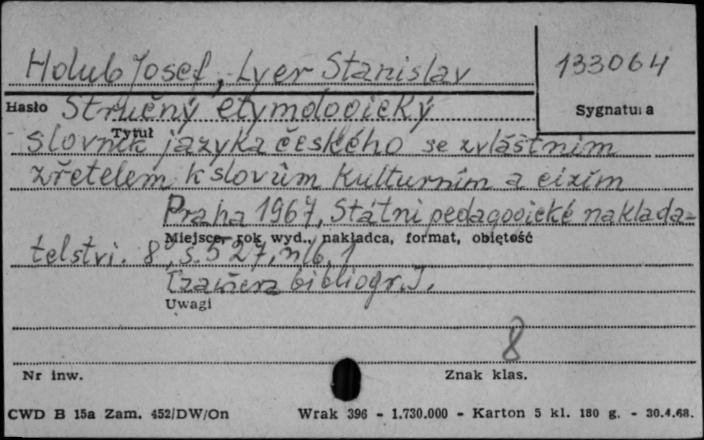 Holub Josef, Lyer Stanislav
133064
Hasło Stručný etymologický
Sygnatura
Tytuł
slovník jazyka českého se zvláštním
zřetelem k slovům kulturním a cizím
Praha 1967, Státní pedagogické naklada-
Miejsce, rok wyd., nakładca, format, objętość
telství. 8, s. 527, nlb. 1
bibliogr.
Uwagi
8
Nr inw.
Znak klas.
CWD B 15a Zam. 452/DW/On Wrak 396 - 1.730.000 - Karton 5 kl. 180 g. - 30.4.68.